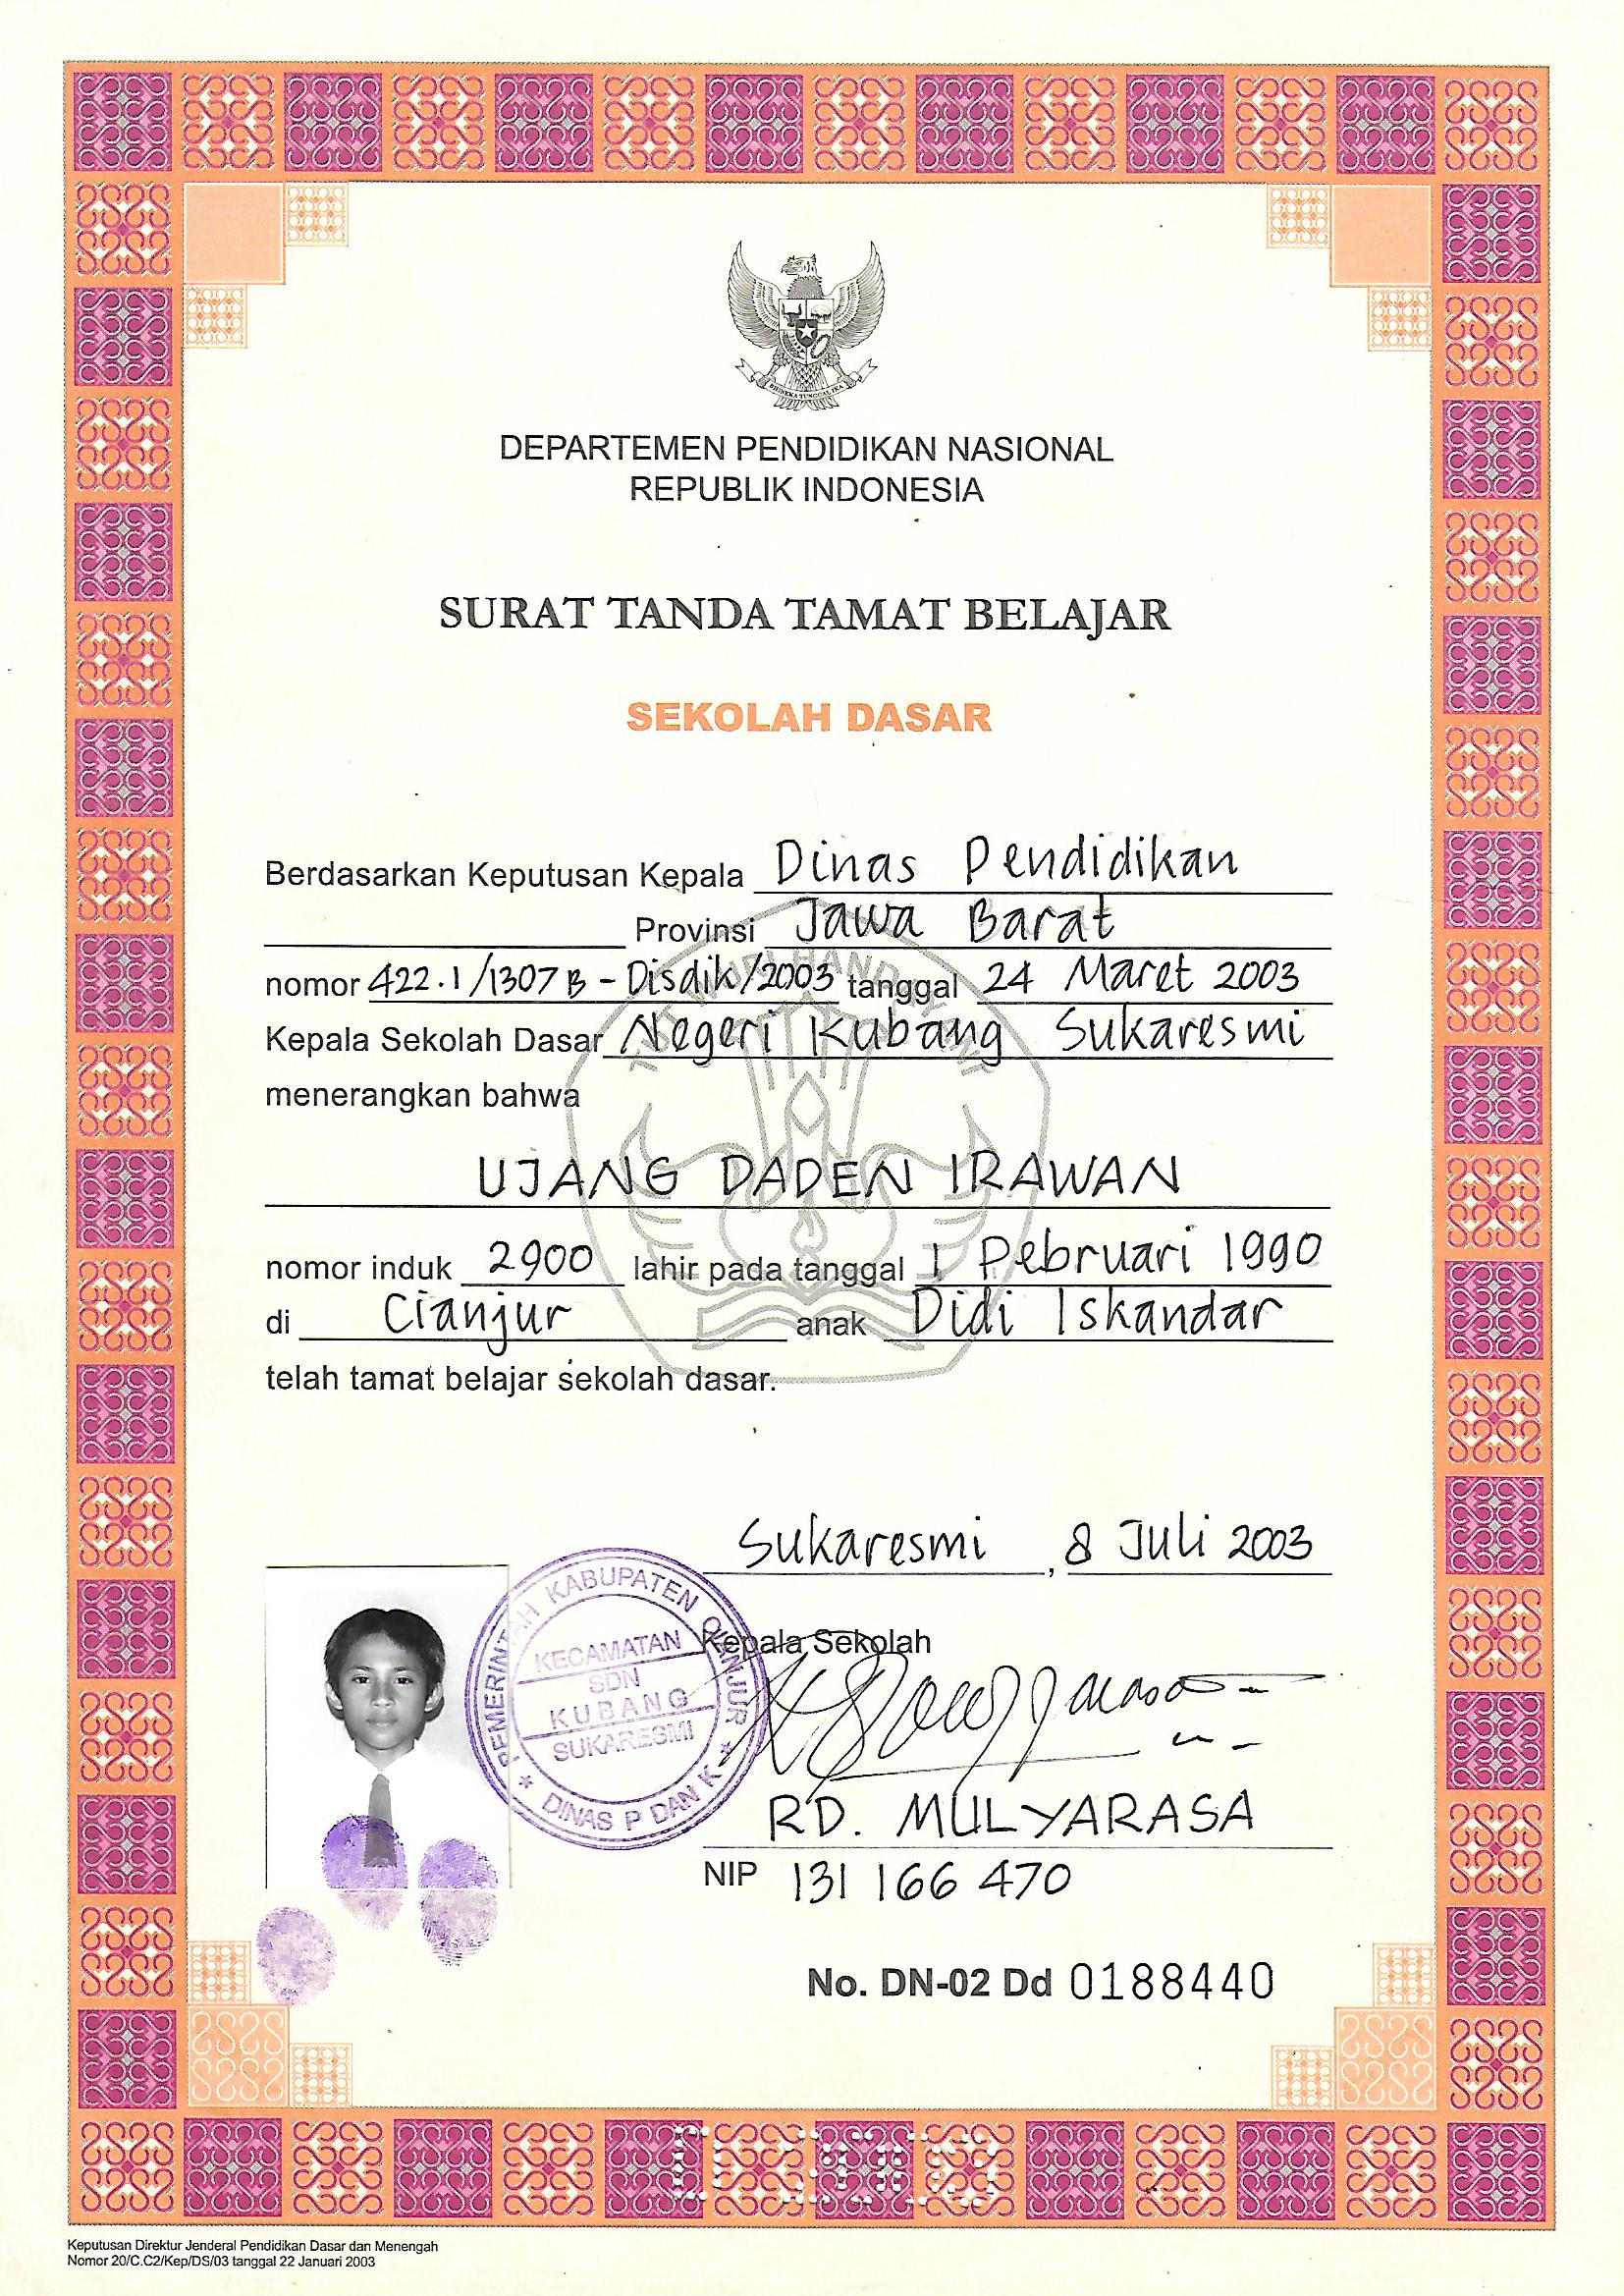 BHINNEKA TUNGGAL IKA
DEPARTEMEN PENDIDIKAN NASIONAL
REPUBLIK INDONESIA
SURAT TANDA TAMAT BELAJAR
SEKOLAH DASAR
Berdasarkan Keputusan Kepala Dinas Pendidikan
Provinsi Jawa Barat
nomor 422.1/1307 B - Disdik/2003 tanggal 24 Maret 2003
Kepala Sekolah Dasar Negeri Kubang Sukaresmi
menerangkan bahwa
UJANG DADEN IRAWAN
nomor induk 2900 lahir pada tanggal 1 Pebruari 1990
di Cianjur anak Didi Iskandar
telah tamat belajar sekolah dasar.
Sukaresmi, 8 Juli 2003
PEMERINTAH KABUPATEN CIANJUR
KECAMATAN
SDN
KUBANG
SUKARESMI
* DINAS P DAN K *
Kepala Sekolah
RD. MULYARASA
NIP 131 166 470
No. DN-02 Dd 0188440
Keputusan Direktur Jenderal Pendidikan Dasar dan Menengah
Nomor 20/C.C2/Kep/DS/03 tanggal 22 Januari 2003